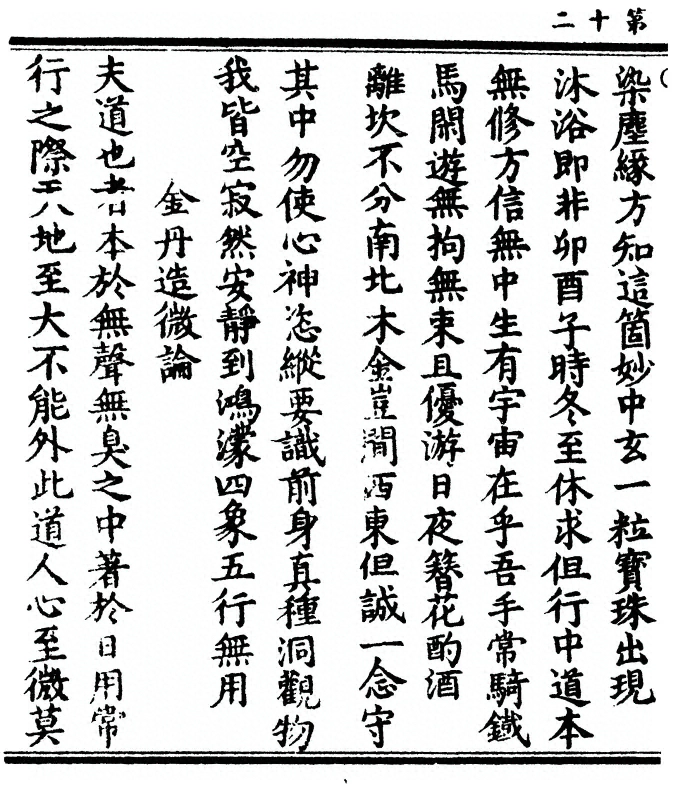 第十二
染塵緣方知這箇妙中玄一粒寶珠出現
沐浴即非卯酉子時冬至休求但行中道本
無修方信無中生有宇宙在乎吾手常騎鐵
馬閑遊無拘無束且優游日夜簪花酌酒
離坎不分南北木金豈間西東但誠一念守
其中勿使心神恣縱要識前身真種洞觀物
我皆空寂然安靜到鴻濛四象五行無用
金丹造微論
夫道也者本於無聲無臭之中著於日用常
行之際天地至大不能外此道人心至微莫